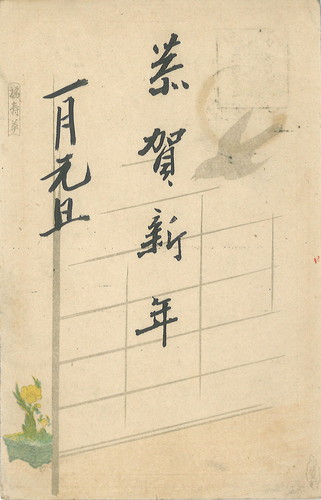 恭賀新年
一月元旦
福寿草